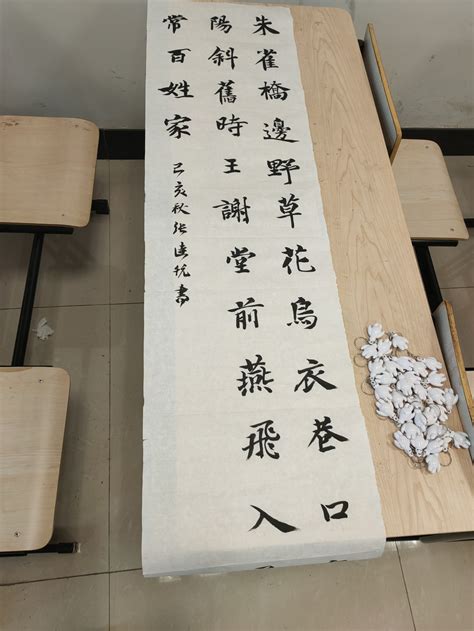 朱雀橋邊野草花烏衣巷口
陽斜舊時王謝堂前燕飛入
常百姓家
己亥秋张書